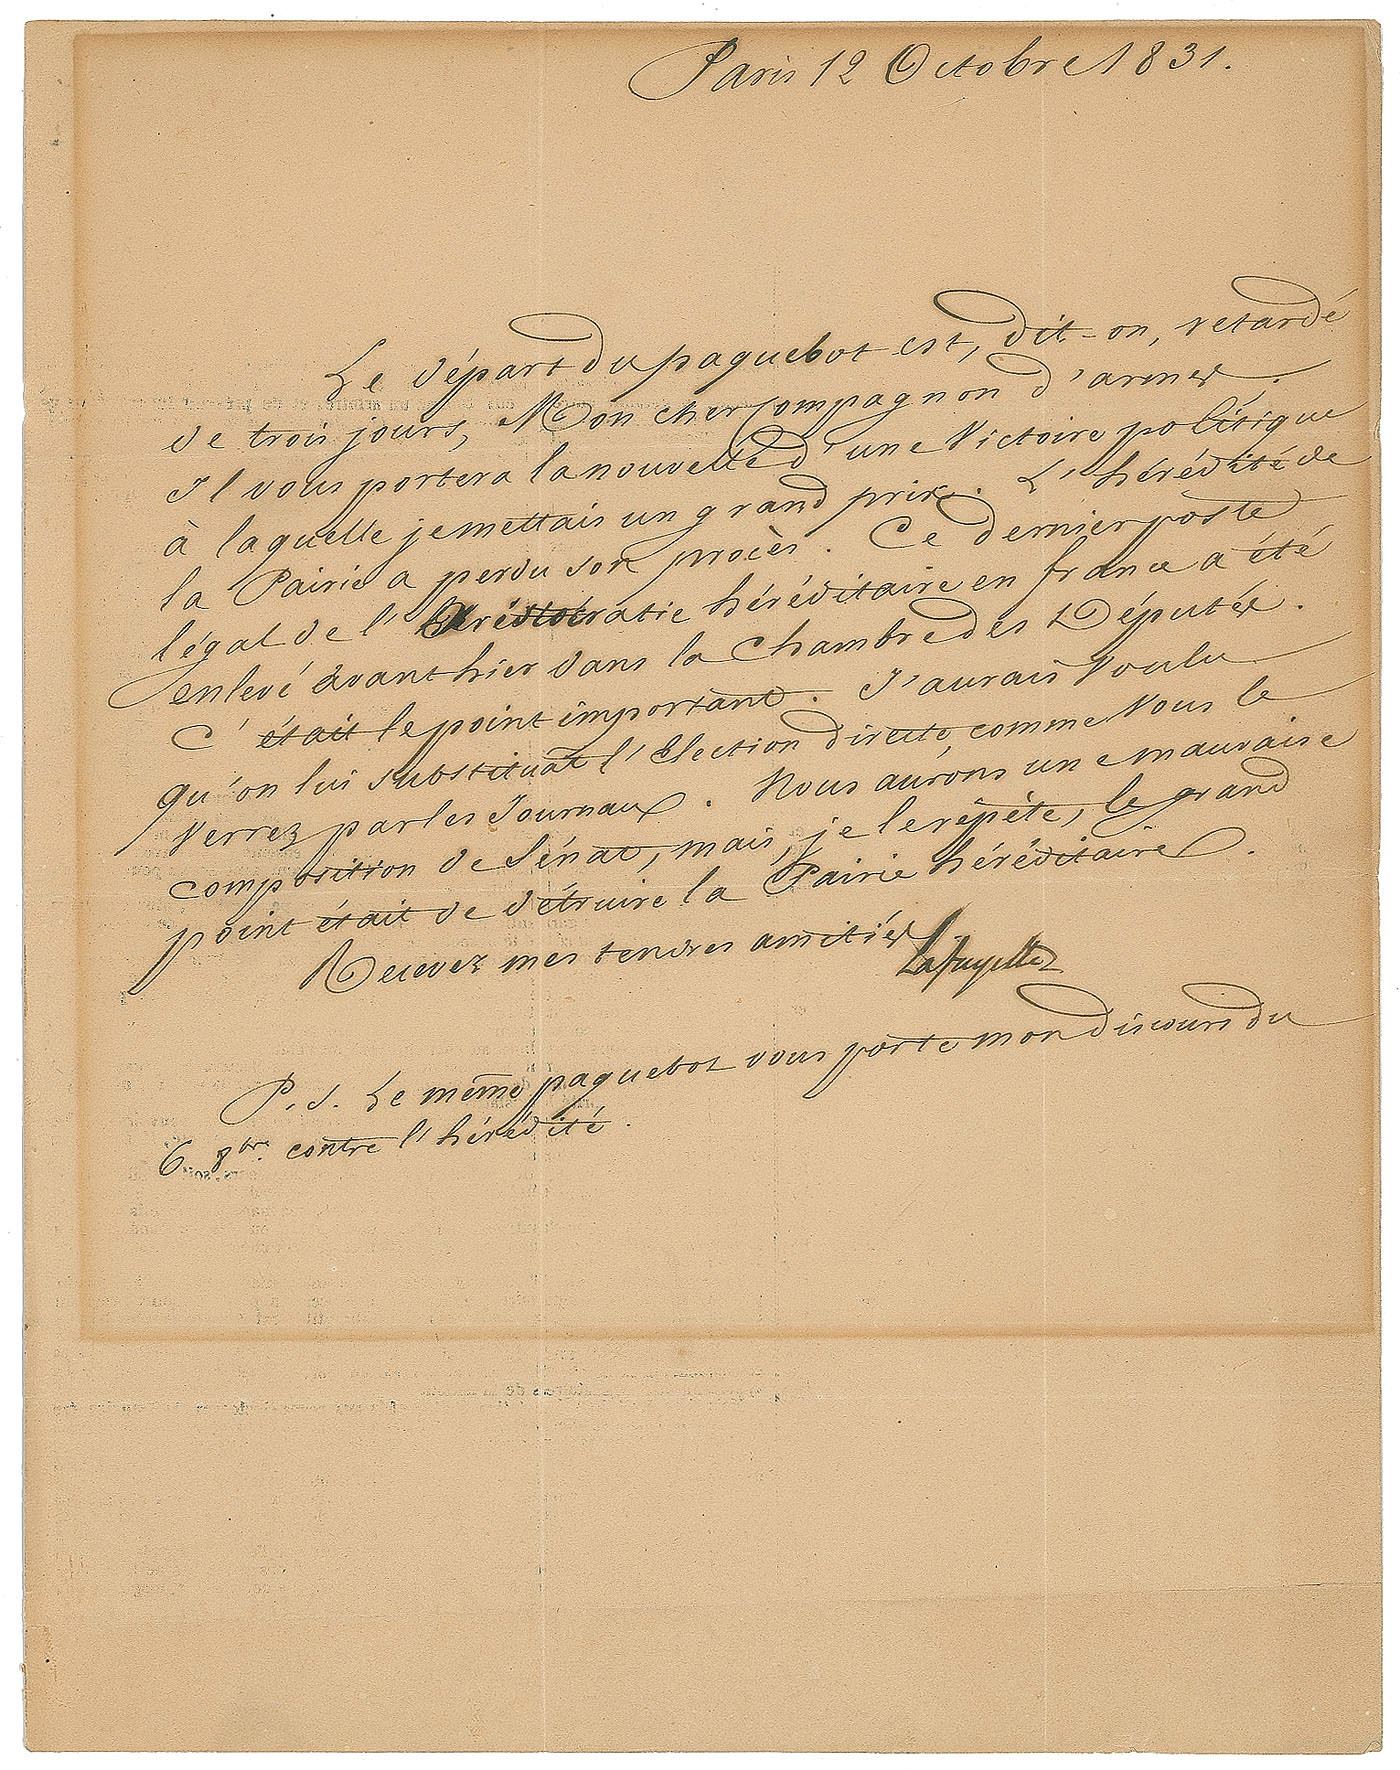 Paris 12 Octobre 1831.
Le départ du paquebot est, dit-on, retardé
de trois jours, Mon cher Compagnon d'armes.
Il vous portera la nouvelle d'une Victoire politique
à laquelle je mettais un grand prix. L'hérédité de
la Pairie a perdu son procès. Ce dernier poste
légal de l'Aristocratie héréditaire en france a été
enlevé avant hier dans la Chambre des Députés.
C'était le point important. J'aurais Voulu
qu'on lui substituât l'Election directe, comme Vous le
Verrez par les Journaux. Nous aurons une mauvaise
composition de Sénat, mais, je le répète, le grand
point était de détruire la Pairie héréditaire.
Recevez mes tendres amitiés
Lafayette
P. S. Le même paquebot vous porte mon discours du
6 8bre. contre l'hérédité.